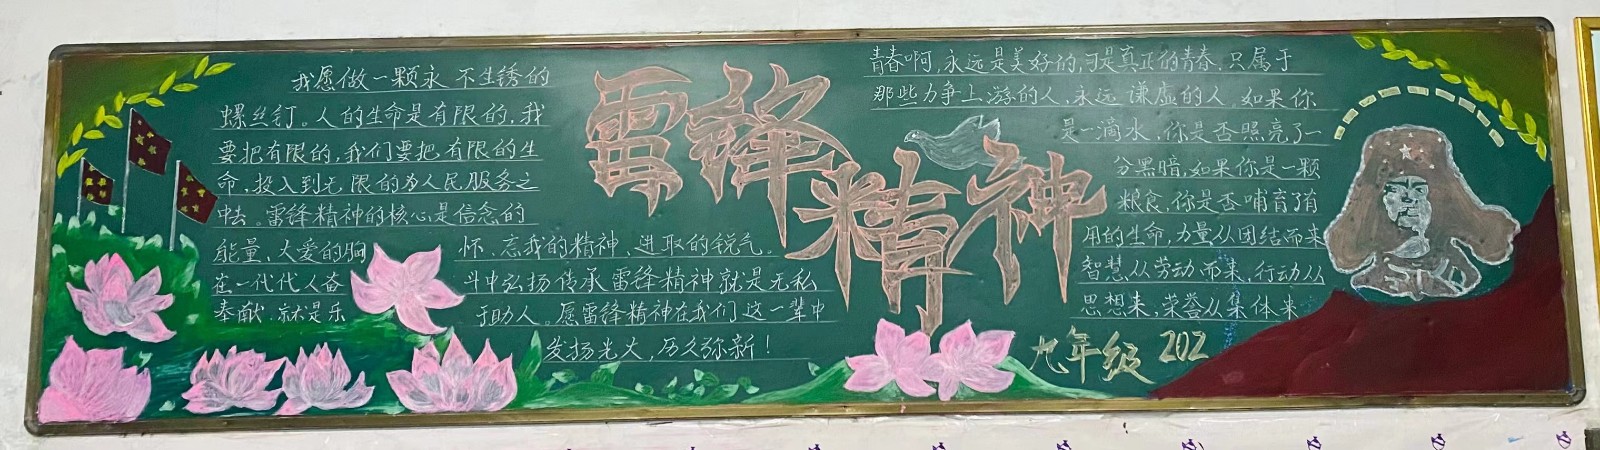 我愿做一颗永不生锈的
螺丝钉。人的生命是有限的,我
要把有限的,我们要把有限的生
命,投入到无限的为人民服务之
中去。雷锋精神的核心是信念的
能量、大爱的胸怀、忘我的精神、进取的锐气。
在一代代人奋斗中弘扬传承雷锋精神就是无私
奉献,就是乐于助人。愿雷锋精神在我们这一辈中
发扬光大,历久弥新!
雷锋精神
青春啊,永远是美好的,可是真正的青春,只属于
那些力争上游的人,永远谦虚的人。如果你
是一滴水,你是否照亮了一
分黑暗,如果你是一颗
粮食,你是否哺育了有
用的生命,力量从团结而来
智慧从劳动而来,行动从
思想来,荣誉从集体来
九年级 202